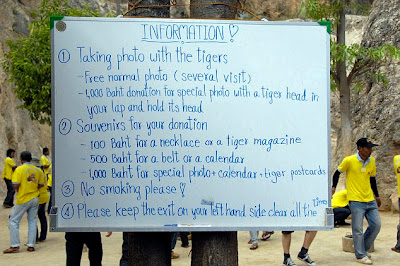 INFORMATION ♡
① Taking photo with the tigers
- Free normal photo (several visit)
- 1,000 Baht donation for special photo with a tiger head in
your lap and hold its head
② Souvenirs for your donation
- 100 Baht for a necklace or a tiger magazine
- 500 Baht for a belt or a calendar
- 1,000 Baht for special photo + calendar + tiger postcards
③ No smoking please!
④ Please keep the exit on your left hand side clear all the times